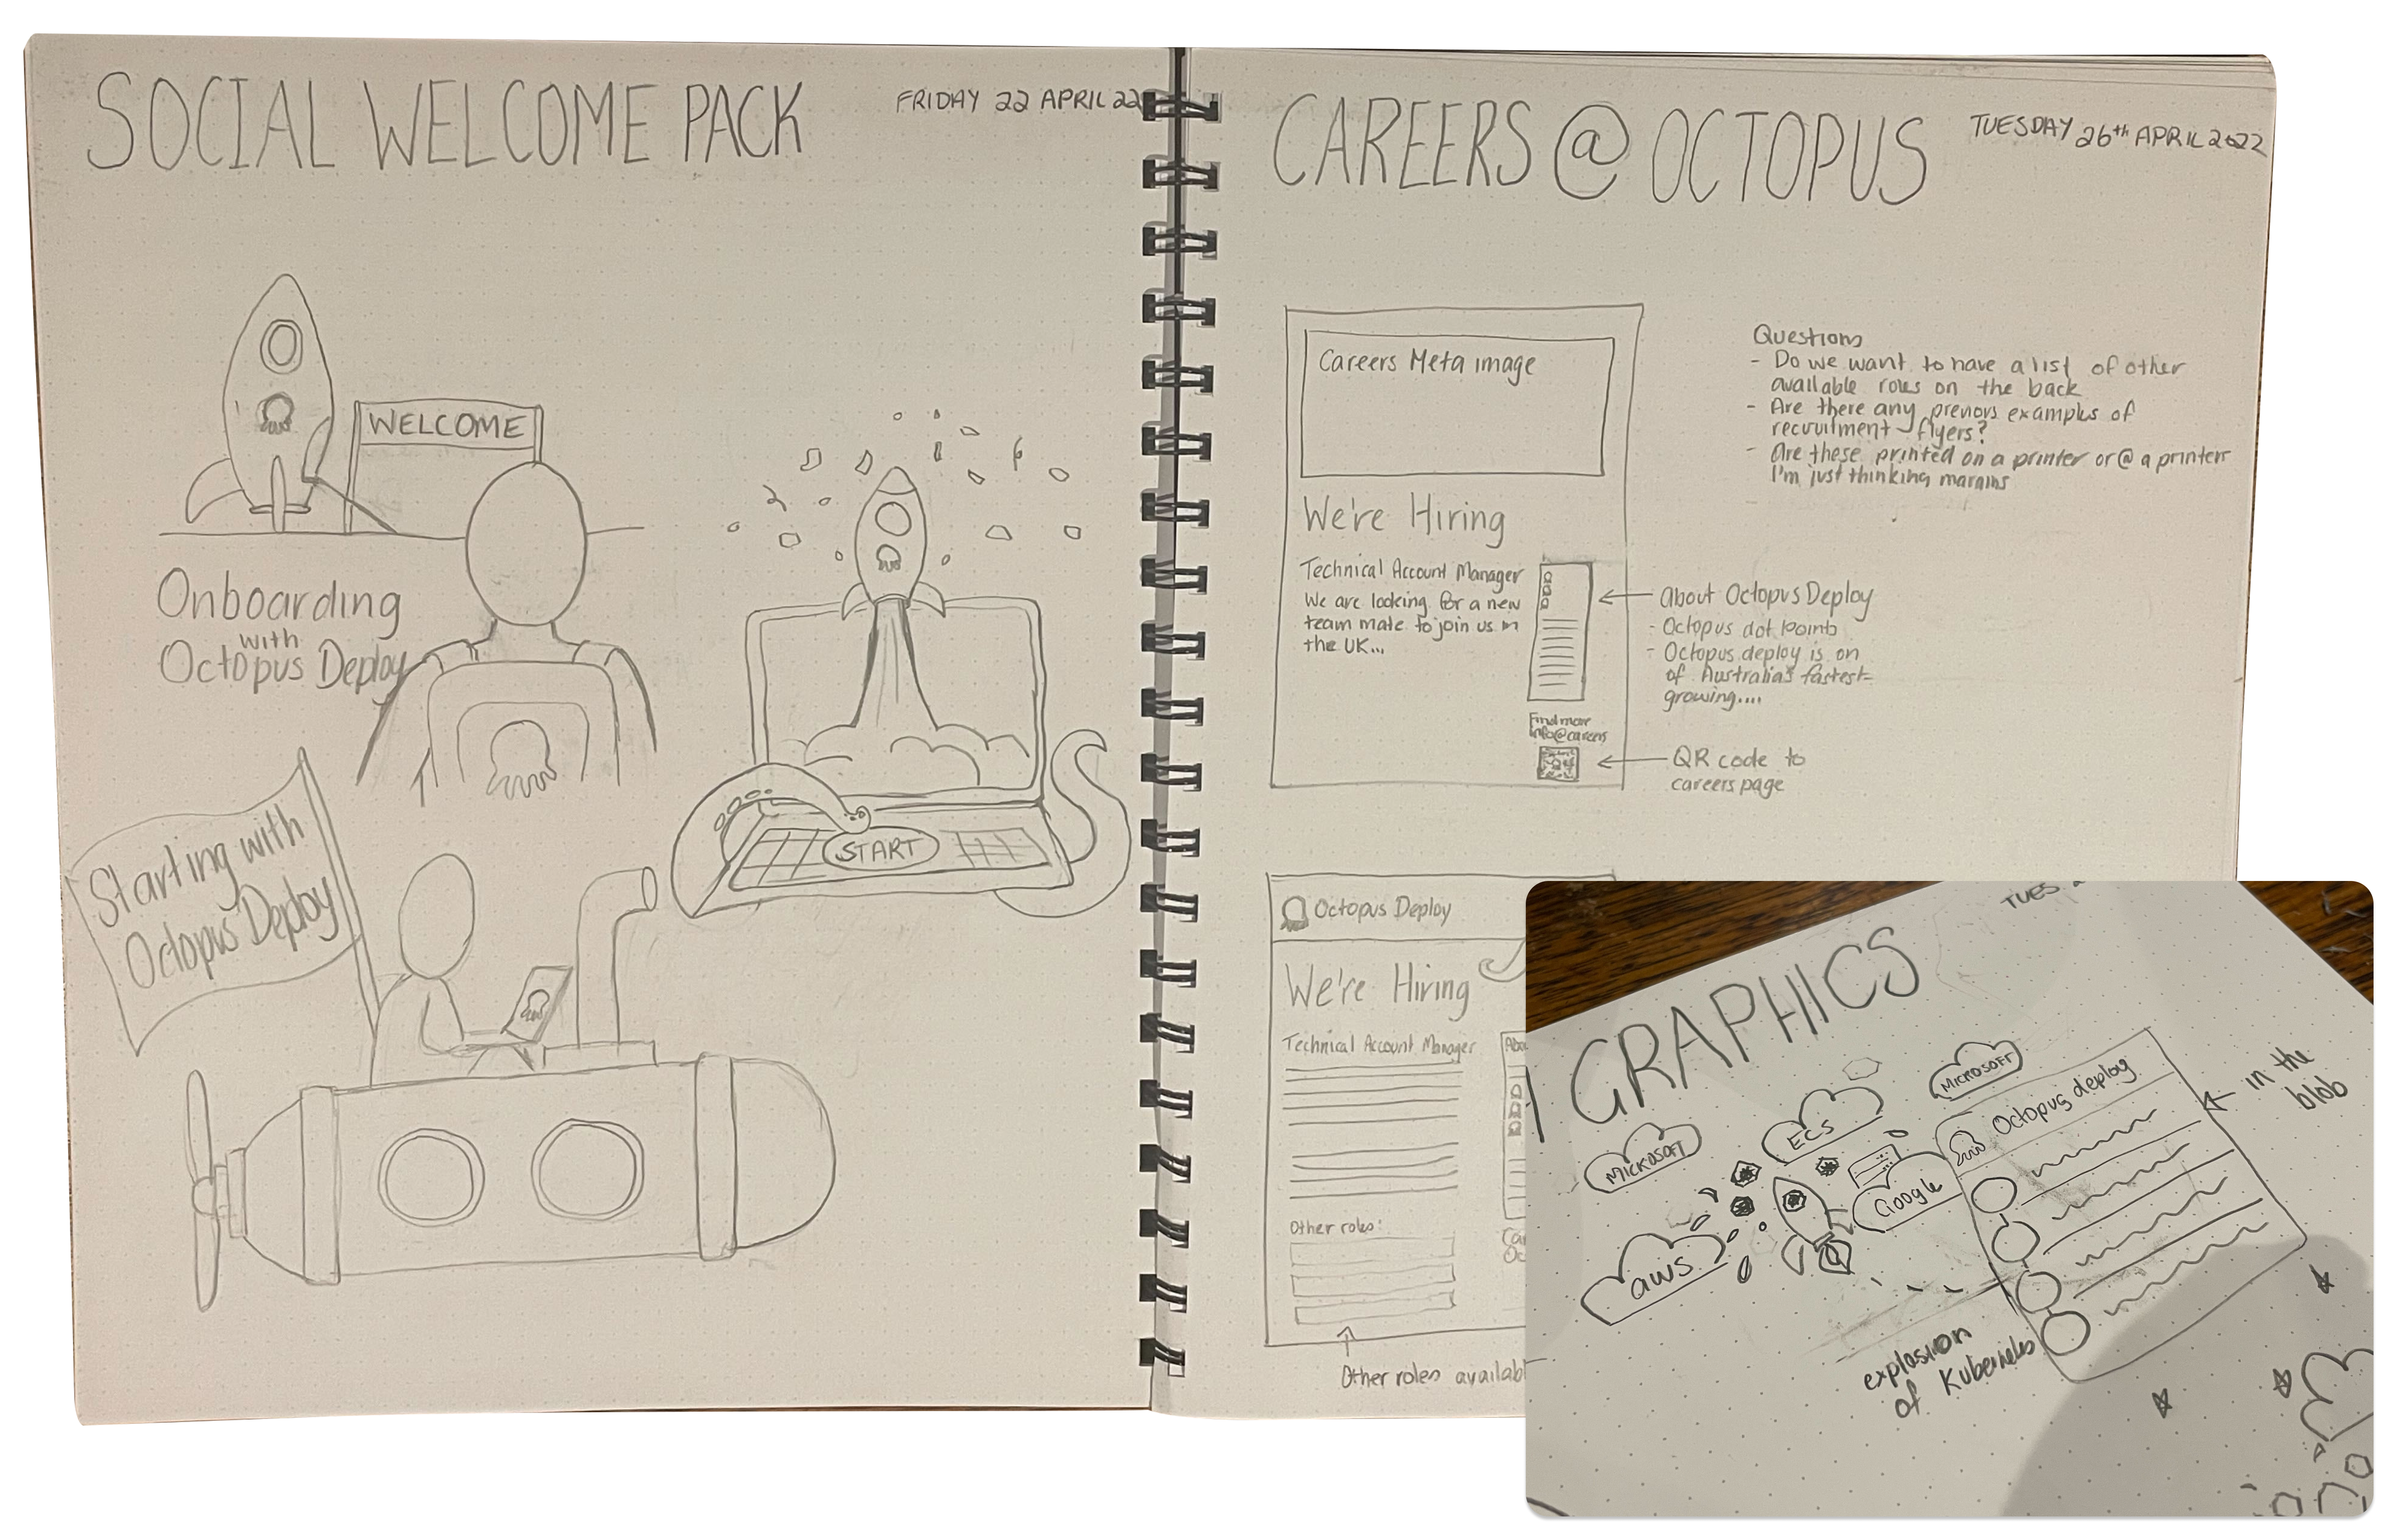 SOCIAL WELCOME PACK
FRIDAY 22 APRIL 22
WELCOME
Onboarding
with
Octopus Deploy
START
Starting with
Octopus Deploy
CAREERS @ OCTOPUS
TUESDAY 26th APRIL 2022
Careers Meta image
We're Hiring
Technical Account Manager
We are looking for a new
team mate to join us in
the UK...
Find more
info@careers
Questions
- Do we want to have a list of other
available roles on the back
- Are there any previous examples of
recruitment flyers?
- Are these printed on a printer or @ a printers
I'm just thinking margins
About Octopus Deploy
- Octopus dot points
- Octopus deploy is on
of Australia's fastest-
growing....
QR code to
careers page
Octopus Deploy
We're Hiring
Technical Account Manager
Other roles:
Other roles availabl
TUES
GRAPHICS
MICROSOFT
ECS
MICROSOFT
Google
aws
Octopus deploy
in the
blob
explosion
of Kubernetes